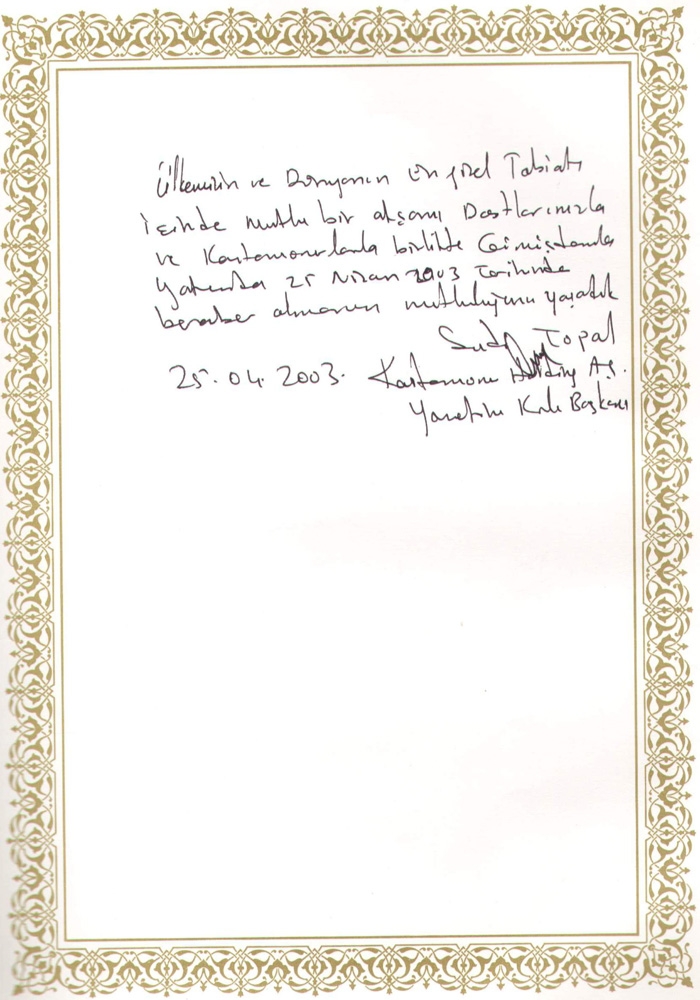 Ülkemizin ve Dünyanın en güzel Tabiatı
içinde mutlu bir akşamı Dostlarımızla
ve Kastamonularla birlikte
Yatında 25 Nisan 2003 Tarihinde
beraber olmanın mutluluğunu yaşadık
Topal
25.04.2003. Kastamonu Holding A.Ş.
Yönetim Krl Başkanı